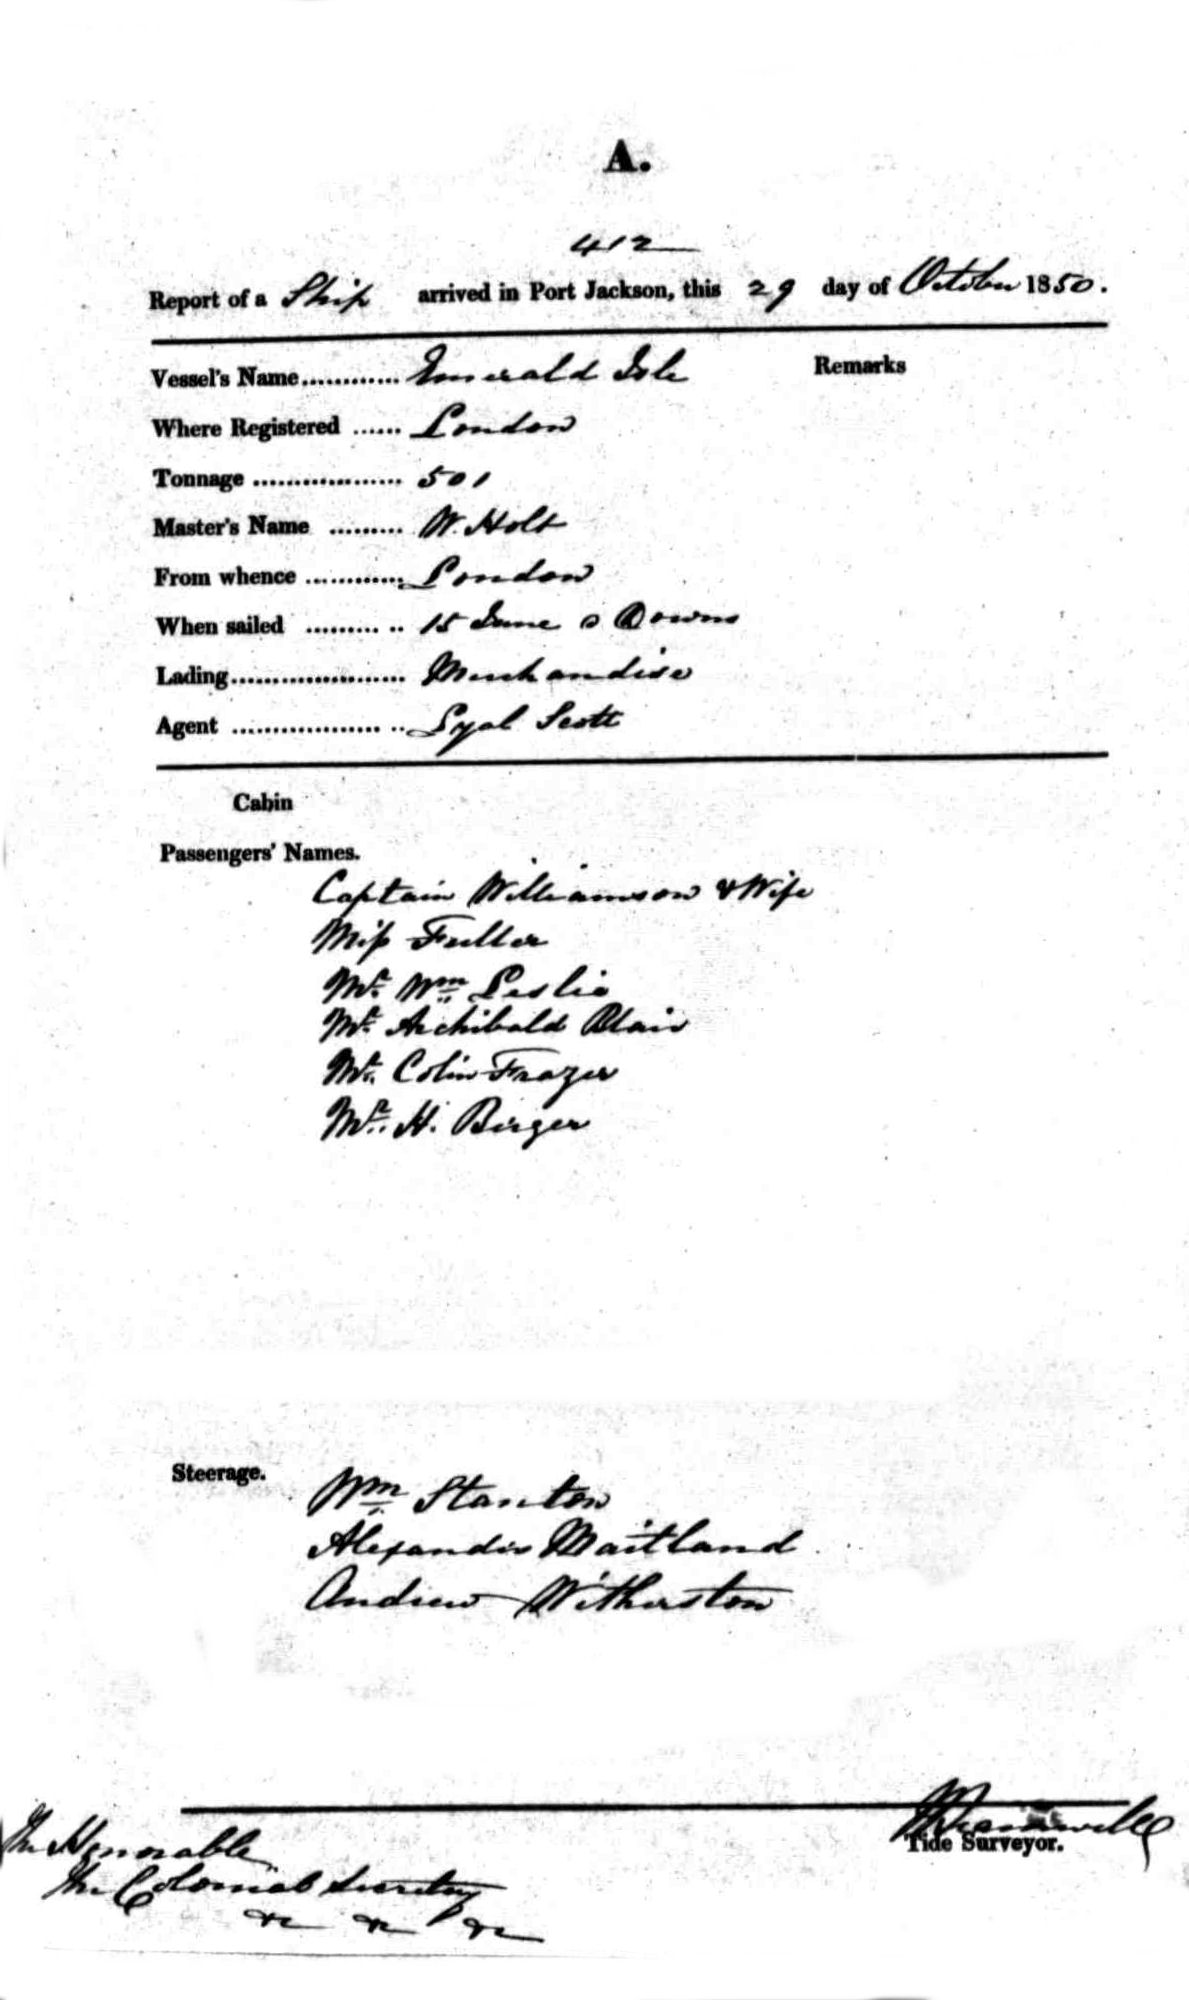 A.
412
Report of a Ship arrived in Port Jackson, this 29 day of October 1850.
Vessel's Name............ Emerald Isle Remarks
Where Registered ...... London
Tonnage .................. 501
Master's Name ......... W. Holt
From whence ............ London
When sailed ......... .. 15 June Downs
Lading..................... Merchandise
Agent .................. .. Lyal Scott
Cabin
Passengers' Names.
Captain Williamson & Wife
Miss Fuller
Mr. Wm Leslie
Mr. Archibald Blair
Mr. Colin Frazer
Mr. H. Birger
Steerage.
Wm Stanton
Alexander Maitland
Andrew Witherston
Tide Surveyor.
The Honorable
The Colonial Secretary
&c &c &c